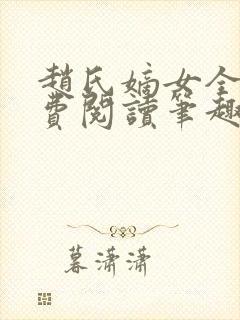 趙氏嫡女全
費閱讀筆趣
暮瀟瀟